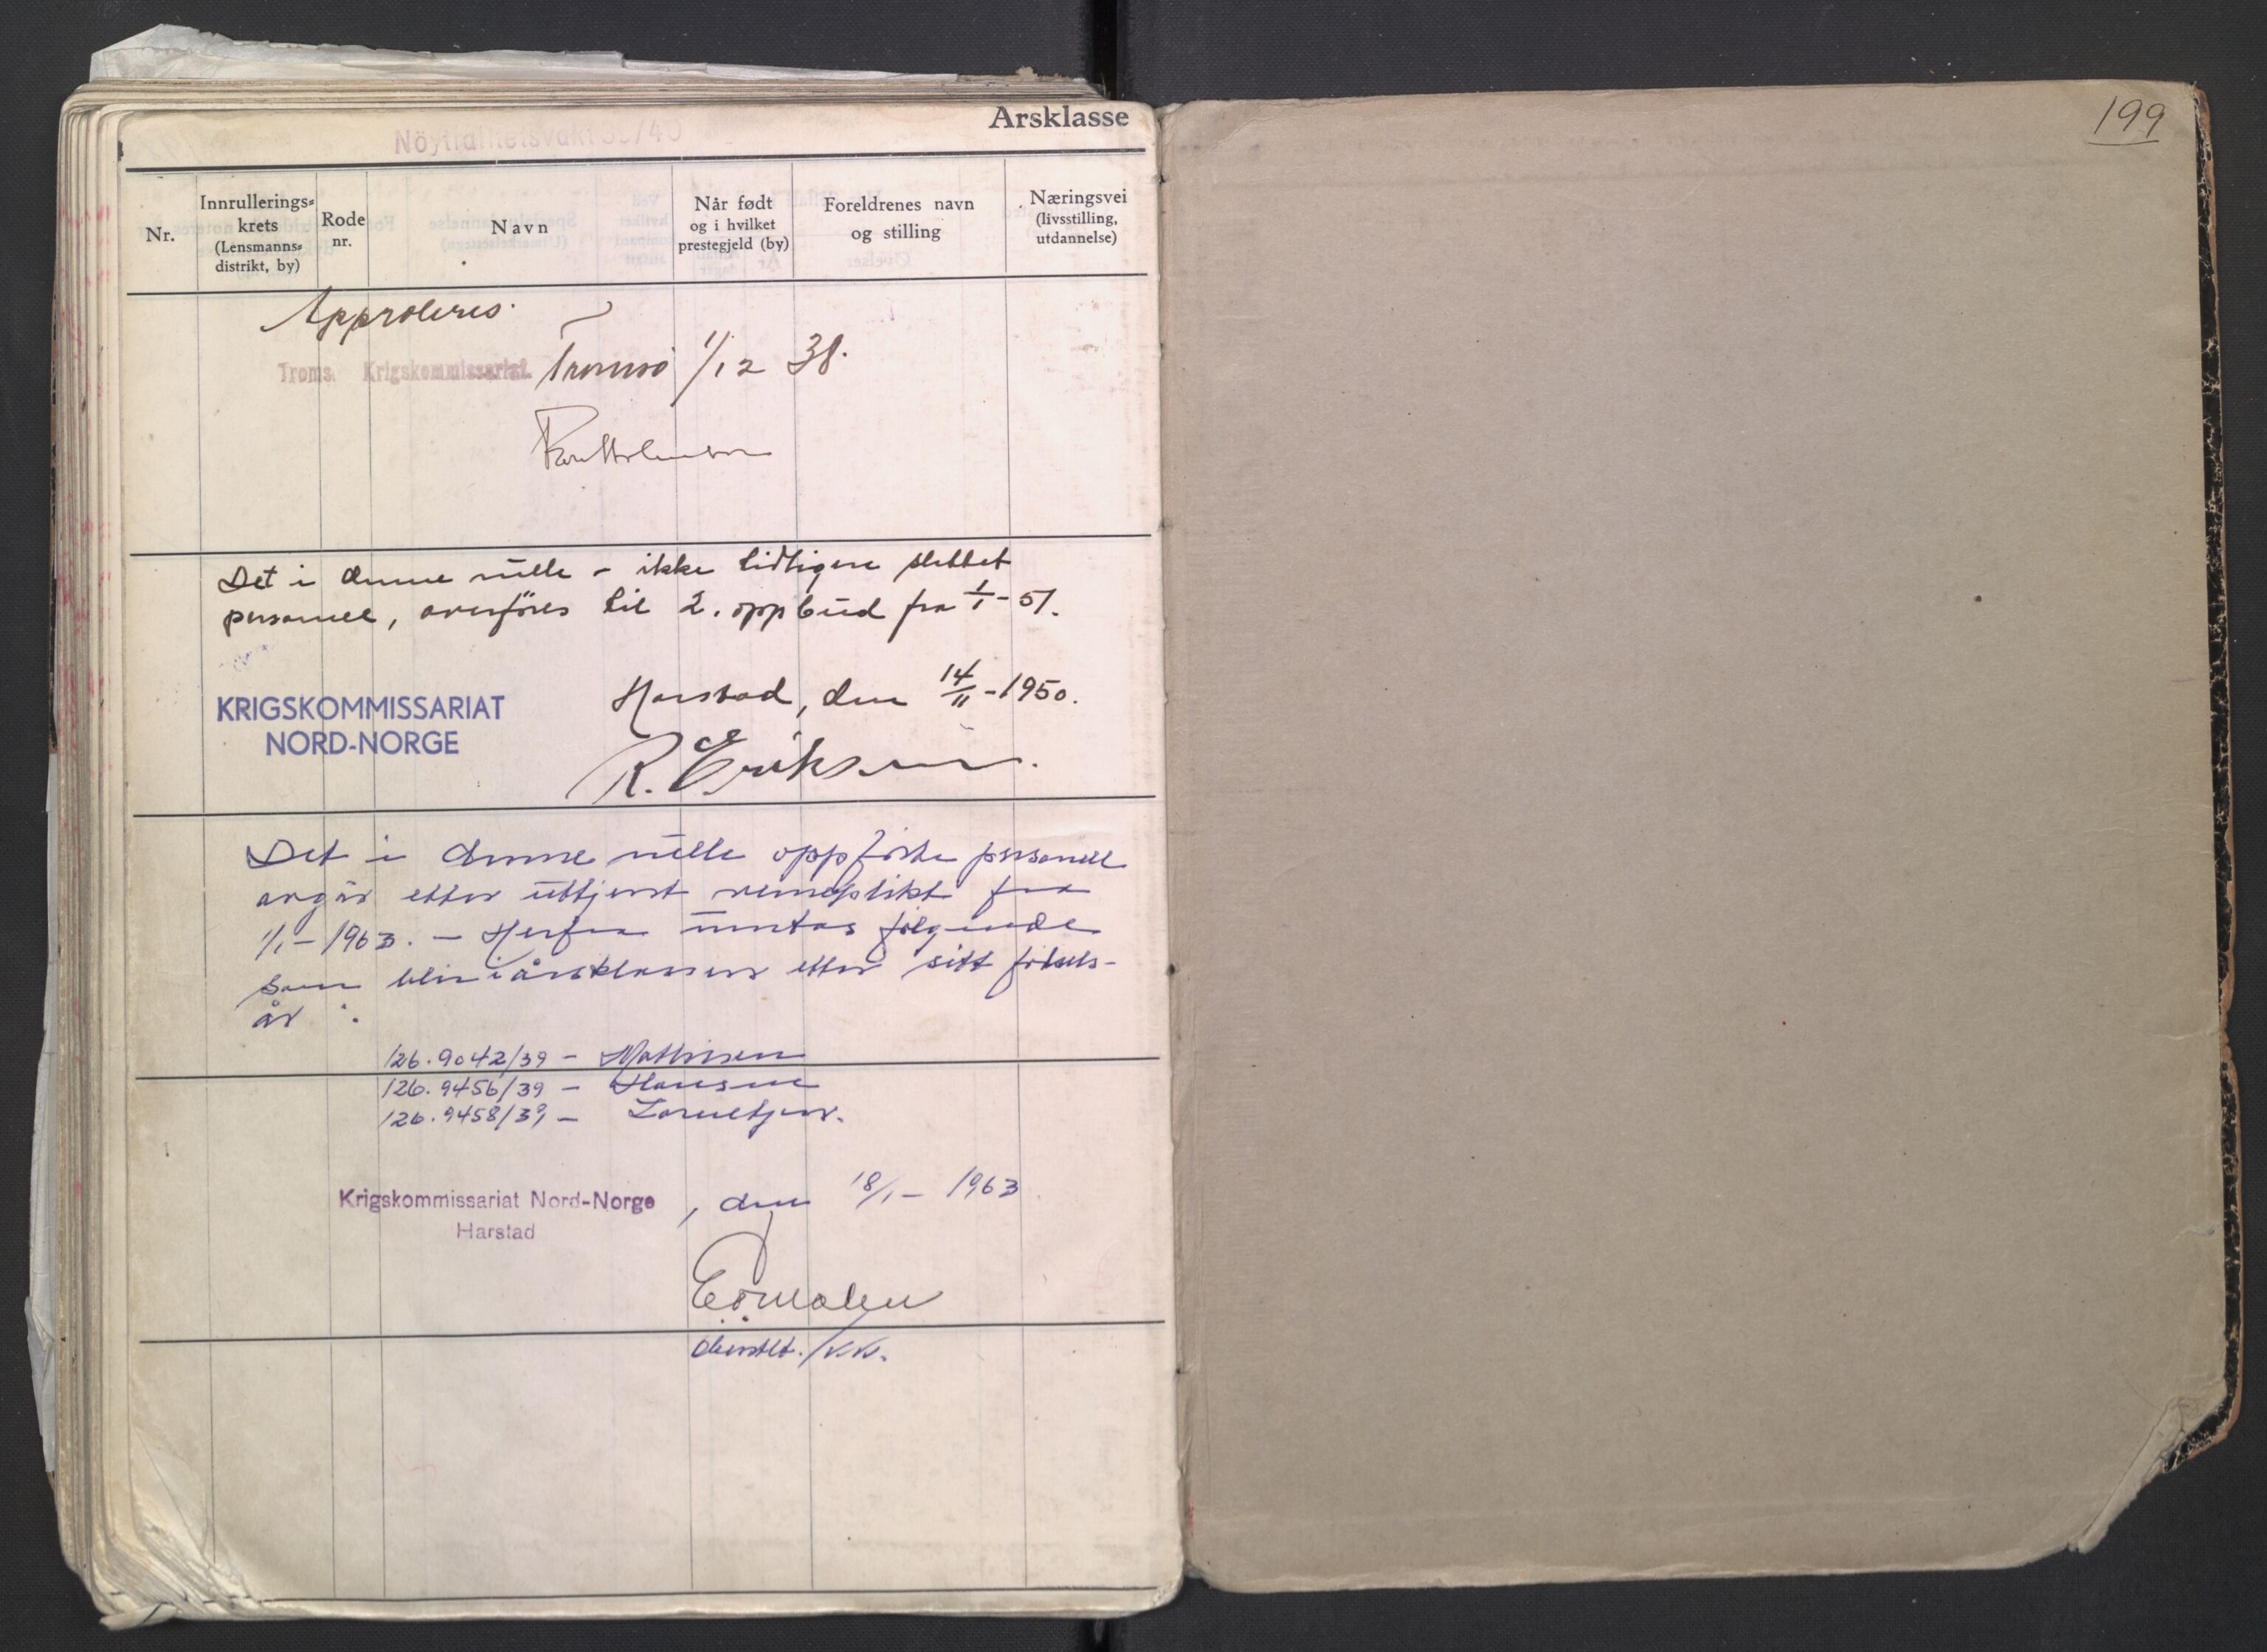 199
Årsklasse
Nöytralitetsvakt 39/40
Nr.
Innrullerings-
krets
(Lensmanns-
distrikt, by)
Rode
nr.
Navn
Når født
og i hvilket
prestegjeld (by)
Foreldrenes navn
og stilling
Næringsvei
(livsstilling,
utdannelse)
Approberes.
Troms Krigskommissariat. Tromsö 1/12 38.
Det i denne rulle - ikke tidligere slettet
personell, overföres til 2. oppbud fra 1/1-51.
Harstad, den 14/11-1950.
KRIGSKOMMISSARIAT
NORD-NORGE
R. Eriksen.
Det i denne rulle oppförte personell
avgår etter uttjent verneplikt fra
1/1-1963. - Herfra unntas fölgende
som blir i årsklassen etter sitt födsels-
år :
126.9042/39 - Mathisen
126.9456/39 - Hansen
126.9458/39 -
Krigskommissariat Nord-Norge , den 18/1-1963
Harstad